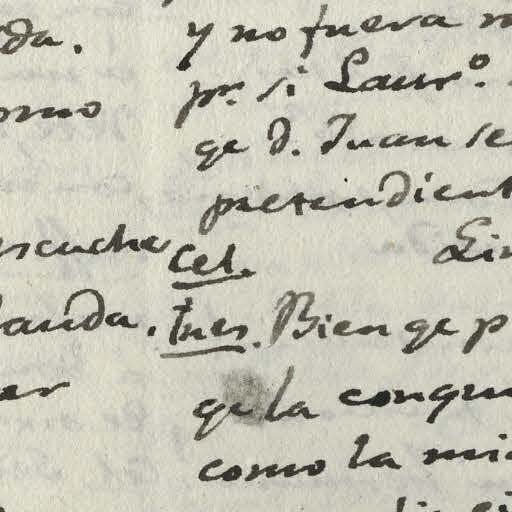 da.
omo
escuche
landa.
er
y no fuera m
pr. si Laur.º
qe d. Juan se
pretendient
Cel. Lin
Ines. Bien qe p
qe la conqu
como la mi